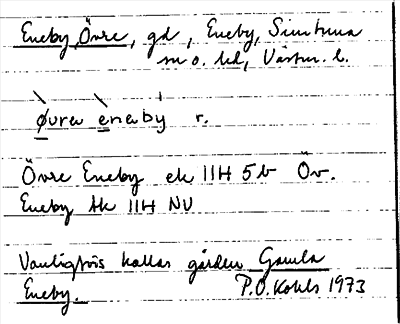 Eneby, Övre, gd, Eneby, Simtuna
sn o. hd, Västm. l.
øvra eneby r.
Övre Eneby ek 11H 5b Öv.
Eneby tk 11H NV
Vanligtvis kallas gården Gamla
Eneby. P.O. Kohls 1973